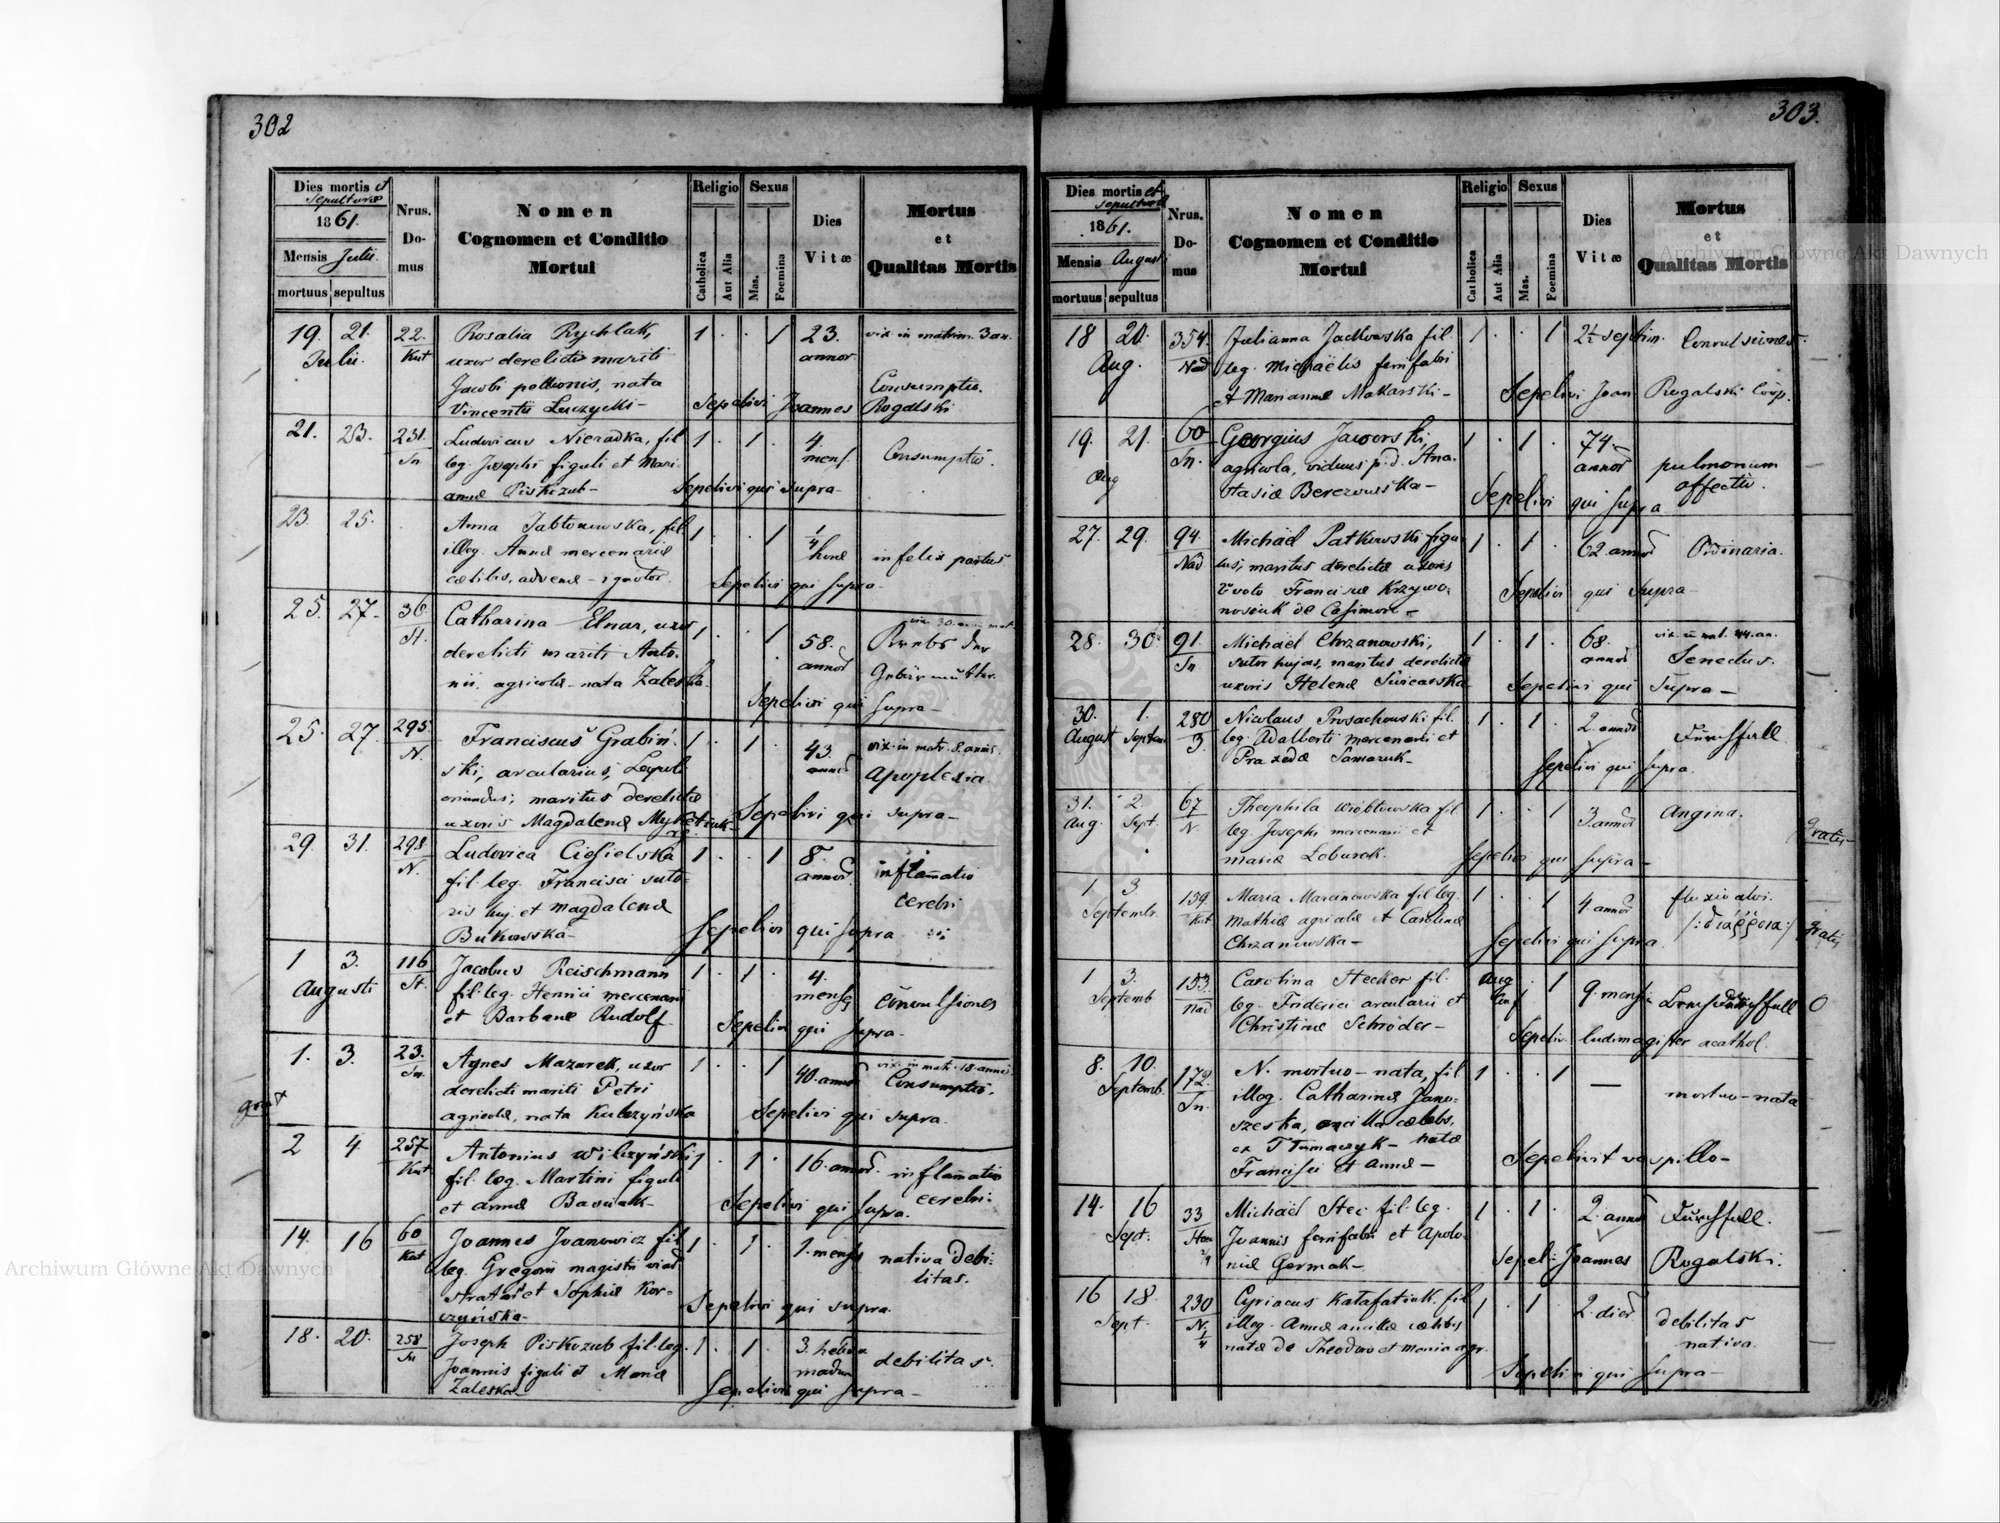 302
Dies mortis et
sepulturæ
1861.
Mensis Julii.
mortuus sepultus
Nrus.
Do-
mus
Nomen
Cognomen et Conditio
Mortui
Religio
Catholica
Aut Alia
Sexus
Mas.
Foemina
Dies
Vitæ
Mortus
et
Qualitas Mortis
19. 21. 22. Rosalia Rychlak, 1 . . 1 23. vix. in matrim. 3 an.
Julii. Kut uxor derelicti mariti annor
Jacobi pellionis, nata Consumptio.
Vincentii Łuczycki - Sepelivi Joannes Rogalski
21. 23. 231. Ludovicus Nieradka, fil 1 . 1 . 4.
Tn leg. Josephi figuli et Mari mens. Consumptio.
annæ Piskozub - Sepelivi qui supra -
23. 25. Anna Jabłonowska, fil. 1 . . 1 1/4
illeg. Annæ mercenariæ horæ infelix partus
cælibis, advenæ - ignotor. Sepelivi qui supra -
25. 27. 36 Catharina Elnar, uxor 1 . . 1 58.
St. derelicti mariti Anto- annor
nii, agricolæ - nata Zaleska Sepelivi qui supra -
25. 27. 295 Franciscus Grabiń- 1 . 1 . 43 vix. in matr. 8 annis.
N. ski, arcularius, Leopoli Apoplexia.
oriundus; maritus derelictæ
uxoris Magdalenæ Sepelivi qui supra -
29. 31. 298 Ludovica Ciesielska 1 . . 1 8. inflam̄atio
N. fil. leg. Francisci suto- annor. cerebri
ris huj. et Magdalenæ
Bukowska - Sepelivi qui supra
1 3. 116 Jacobus Reischmann 1 . 1 . 4.
Augusti St. fil. leg. Henrici mercenarii menses convulsiones
et Barbaræ Rudolf Sepelivi qui supra -
1. 3. 23. Agnes Mazurek, uxor 1 . . 1 40. annor vix. in mat. 18. annis
Tn. derelicti mariti Petri Consumptio.
grat agricolæ, nata Kulczyńska Sepelivi qui supra
2 4. 257 Antonius Wilczyński 1 . 1 . 16. annor. inflam̄atio
Kut fil. leg. Martini figuli cerebri.
et Annæ Basiuk - Sepelivi qui supra.
14. 16 60 Joannes Joanowicz fil 1 . 1 . 1. mensis nativa debi-
Kut leg. Gregorii magistri viæ litas.
stratæ et Sophiæ Kor-
czyńska - Sepelivi qui supra.
18. 20. 258 Joseph Piskozub fil. leg. 1 . 1 . 3. hebdo
Tn Joannis figuli et Mariæ madum debilitas.
Zaleska - Sepelivi qui supra -
303.
Dies mortis et
sepulturæ
1861.
Mensis Augusti
mortuus sepultus
Nrus.
Do-
mus
Nomen
Cognomen et Conditio
Mortui
Religio
Catholica
Aut Alia
Sexus
Mas.
Foemina
Dies
Vitæ
Mortus
et
Qualitas Mortis
18 20. 354. Julianna Jackowska fil 1 . . 1 2½ septim. Convulsiones.
Aug. Nad leg. Michaëlis ferrifabri
et Mariannæ Makarski - Sepelivi Joan Rogalski Coop.
19. 21. 60 Georgius Jaworski, 1 . 1 . 74
Aug Tn. agricola, viduus p. d. Ana- annor pulmonum
stasiæ Berezowska - Sepelivi qui supra affectio.
27. 29. 94. Michaël Patkowski figu- 1 . 1 . 62 annor Ordinaria.
Nad lus, maritus derelictæ uxoris
2° voto Francisæ Krzywo-
nosiuk de Casimore - Sepelivi qui supra -
28. 30. 91. Michaël Chrzanowski, 1 . 1 . 68. vix. in mat. 44. an.
Tn sutor hujas, maritus derelictæ annor Senectus.
uxoris Helenæ Sepelivi qui supra -
30. 1. 280 Nicolaus Prosachowski fil. 1 . 1 . 2. annor Durchfall
August Septem 3. leg. Adalberti mercenarii et
Praxedæ Tamaruk - Sepelivi qui supra.
31. 2. 67 Theophila Wróblowska fil. 1 . . 1 3. annor Angina.
Aug. Sept. N. leg. Josephi mercenarii et Gratis
Mariæ Loburak. Sepelivi qui supra -
1. 3. 159. Maria Maranowska fil. leg. 1 . . 1 4 annor fluxio alvi.
Septembr. Kut Mathiæ agricolæ et Carolinæ /:διάῤῥοια:/ Gratis
Chrzanowska - Sepelivi qui supra.
1 3. 153. Carolina Hecker fil. Aug . 1 9. mensium
Septemb Nad leg. Friderici arcularii et Conf 0
Christinæ Schröder - Sepelivi ludimagister acathol.
8. 10. 172. N. mortuo - nata, fil 1 . . 1 —
Septemb. Tn. illeg. Catharinæ Jano- mortuo - nata
szeska, ancillæ cælebs,
ex Tłumaczyk - natæ
Francisci et Annæ - Sepelivit vespillo -
14. 16 33 Michaël Stec fil. leg. 1 . 1 . 2. annor Durchfall.
Sept. Joannis ferrifabri et Apolo-
niæ Germak - Sepel: Joannes Rogalski.
16 18. 230 Cyriacus Katafatiuk fil 1 . 1 . 2. dier debilitas
Sept. N. illeg. Annæ ancillæ cælibis nativa.
natæ de Theodoro et Maria agr.
Sepelivi qui supra -
Archiwum Główne Akt Dawnych
Archiwum Główne Akt Dawnych